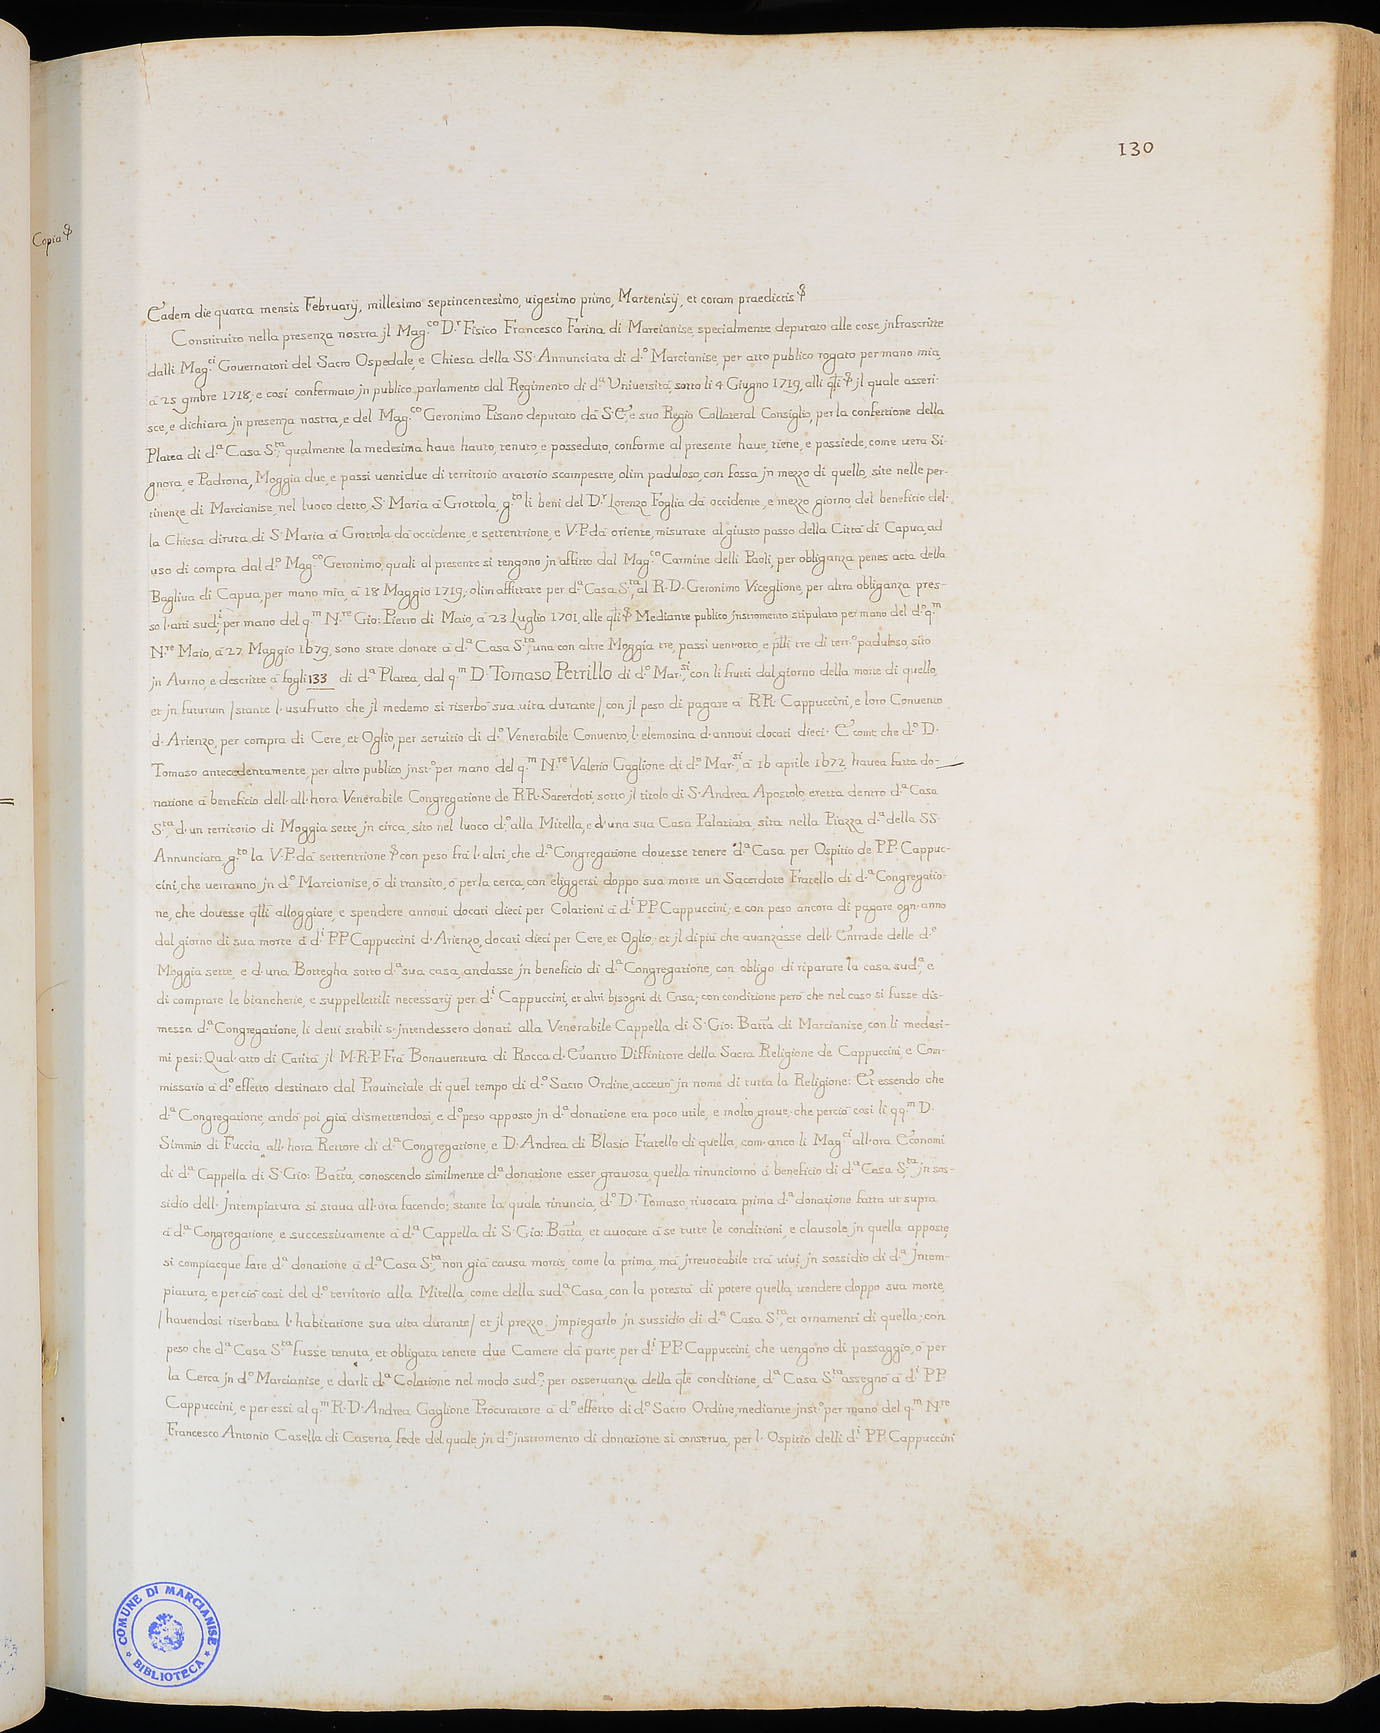 130
Copia &
Eadem die quarta mensis Februarij, millesimo septincentesimo, uigesimo primo, Martenisij, et coram praedictis &
Constituito nella presenza nostra jl Mag.co D.r Fisico Francesco Farina di Marcianise, specialmente deputato alle cose jnfrascritte
dalli Mag.ci Gouernatori del Sacro Ospedale, e Chiesa della SS. Annunciata di d.o Marcianise, per atto publico rogato per mano mia,
à 25 9mbre 1718; e così confermato jn publico parlamento dal Regimento di d.a Università, sotto li 4 Giugno 1719, alli qłi & jl quale asseri-
sce, e dichiara jn presenza nostra, e del Mag.co Geronimo Pisano deputato dà S.E., e suo Regio Collateral Consiglio, per la confettione della
Platea di d.a Casa S.ta, qualmente la medesima haue hauto, tenuto, e posseduto, conforme al presente haue, tiene, e possiede, come uera Si-
gnora, e Padrona, Moggia due, e passi uentidue di territorio aratorio scampestre, olim paduloso, con fossa jn mezzo di quello, site nelle per-
tinenze di Marcianise, nel luoco detto, S. Maria à Grottola, g.to li beni del D.r Lorenzo Foglia dà occidente, e mezzo giorno, del beneficio del-
la Chiesa diruta di S. Maria à Grottola dà occidente, e settentrione, e V.P. dà oriente, misurate al giusto passo della Città di Capua, ad
uso di compra dal d.o Mag.co Geronimo, quali al presente si tengono jn affitto dal Mag.co Carmine delli Paoli, per obliganza penes acta della
Bagliua di Capua, per mano mia, à 18 Maggio 1719; olim affittate per d.a Casa S.ta, al R.D. Geronimo Viceglione, per altra obliganza pres-
so l'atti sud.i, per mano del q.m N.re Gio: Pietro di Maio, à 23 Luglio 1701, alle qłi & Mediante publico jnstromento stipulato per mano del d.o q.m
N.re Maio, à 27 Maggio 1679, sono state donate à d.a Casa S.ta, una con altre Moggia tre, passi uentotto, e płli tre di terr.o paduloso, sito
jn Aurno, e descritte à fogli 133 di d.a Platea, dal q.m D. Tomaso Petrillo di d.o Mar.si, con li frutti dal giorno della morte di quello,
et jn futurum /stante l'usufrutto che jl medemo si riserbò sua uita durante/, con jl peso di pagare à RR. Cappuccini, e loro Conuento
d'Arienzo, per compra di Cere, et Oglio, per seruitio di d.o Venerabile Conuento, l'elemosina d'annoui docati dieci. E come che d.o D.
Tomaso antecedentamente, per altro publico jnst.o per mano del q.m N.re Valerio Gaglione di d.o Mar.si, à 16 aprile 1672, hauea fatta do-
natione à beneficio dell'all'hora Venerabile Congregatione de RR. Sacerdoti, sotto jl titolo di S. Andrea Apostolo, eretta dentro d.a Casa
S.ta, d'un territorio di Moggia sette, jn circa, sito nel luoco d.o, alla Mitella, e d'una sua Casa Palatiata, sita nella Piazza d.a della SS.
Annunciata, g.to la V.P. dà settentrione & con peso frà l'altri, che d.a Congregatione douesse tenere d.a Casa per Ospitio de PP. Cappuc-
cini, che uerranno jn d.o Marcianise, ò di transito, ò per la cerca, con eliggersi doppo sua morte un Sacerdote Fratello di d.a Congregatio-
ne, che douesse qłli alloggiare, e spendere annoui docati dieci per Colationi à d.i PP. Cappuccini; e con peso ancora di pagare ogn'anno
dal giorno di sua morte à d.i PP. Cappuccini d'Arienzo, docati dieci per Cere, et Oglio; et jl di più che auanzasse dell'Entrade delle d.e
Moggia sette, e d'una Bottegha sotto d.a sua casa, andasse jn beneficio di d.a Congregatione, con obligo di riparare la casa sud.a, e
di comprare le biancherie, e suppellettili necessarij per d.i Cappuccini, et altri bisogni di Casa; con conditione però che nel caso si fusse dis-
messa d.a Congregatione, li detti stabili s'jntendessero donati alla Venerabile Cappella di S. Gio: Batt̃a di Marcianise, con li medesi-
mi pesi: Qual'atto di Carità jl M.R.P. Frà Bonauentura di Rocca d'Euantro Diffinitore della Sacra Religione de Cappuccini, e Com-
missario à d.o effetto destinato dal Prouinciale di quel tempo di d.o Sacro Ordine, accettò jn nome di tutta la Religione: Et essendo che
d.a Congregatione, andò poi già dismettendosi, e d.o peso apposto jn d.a donatione era poco utile, e molto graue; che perciò così li qq.m D.
Simmio di Fuccia, all'hora Rettore di d.a Congregatione, e D. Andrea di Blasio Fratello di quella, com'anco li Mag.ci all'ora Economi
di d.a Cappella di S. Gio: Batt̃a, conoscendo similmente d.a donatione esser grauosa, quella rinunciorno à beneficio di d.a Casa S.ta, jn sos-
sidio dell'Jntempiatura si staua all'ora facendo; stante la quale rinuncia, d.o D. Tomaso, riuocata prima d.a donatione fatta ut supra
à d.a Congregatione, e successiuamente à d.a Cappella di S. Gio: Batt̃a, et auocate à se tutte le conditioni, e clausole jn quella apposte,
si compiacque fare d.a donatione à d.a Casa S.ta, non già causa mortis, come la prima, mà jrreuocabile trà uiui, jn sossidio di d.a Jntem-
piatura, e perciò così del d.o territorio alla Mitella, come della sud.a Casa, con la potestà di potere quella uendere doppo sua morte,
/hauendosi riserbata l'habitatione sua uita durante/ et jl prezzo jmpiegarlo jn sussidio di d.a Casa S.ta, et ornamenti di quella; con
peso che d.a Casa S.ta fusse tenuta, et obligata tenere due Camere dà parte, per d.i PP. Cappuccini, che uengono di passaggio, ò per
la Cerca jn d.o Marcianise, e darli d.a Colatione nel modo sud.o; per osseruanza della qłe conditione, d.a Casa S.ta assegnò à d.i PP.
Cappuccini, e per essi al q.m R.D. Andrea Gaglione Procuratore à d.o effetto di d.o Sacro Ordine, mediante jnst.o per mano del q.m N.re
Francesco Antonio Casella di Caserta, fede del quale jn d.o jnstromento di donatione si conserua, per l'Ospitio delli d.i PP. Cappuccini
COMUNE DI MARCIANISE
* BIBLIOTECA *